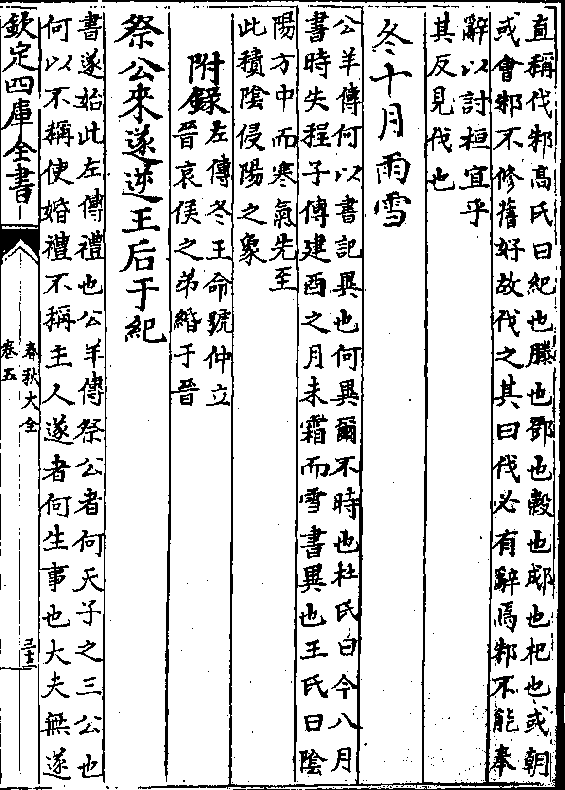 直稱伐邾髙氏曰紀也滕也鄧也榖也郕也杞也或朝
或㑹邾不修舊好故伐之其曰伐必有辭焉邾不能奉
辭以討桓宜乎
其反見伐也
冬十月雨雪
公羊傳何以書記異也何異爾不時也杜氏曰今八月
書時失程子傳建酉之月未霜而雪書異也王氏曰陰
陽方中而寒氣先至
此積陰侵陽之象
附錄左傳冬王命虢仲立
晉哀侯之弟緡于晉
祭公來遂逆王后于紀
書遂始此左傳禮也公羊傳祭公者何天子之三公也
何以不稱使婚禮不稱主人遂者何生事也大夫無遂
欽定四庫全書
春秋大全
卷五